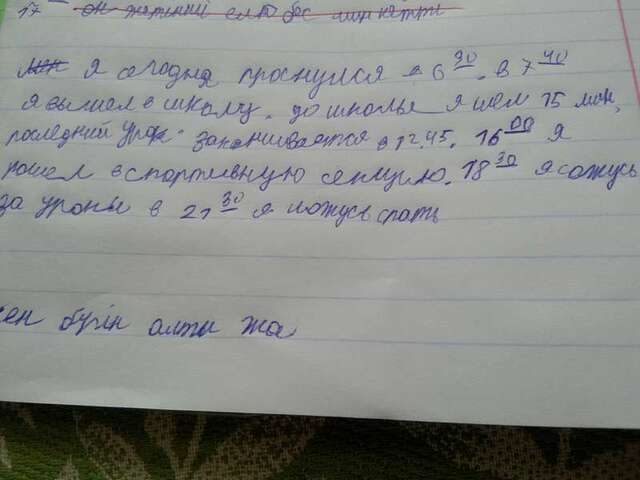 17 он жетинші елю бес минкетті
Мен Я сегодня проснулся в 6 30. в 7 40
я вышел в школу. до школы я шел 15 мин,
последний урок заканчивается в 12.45. 16 00 я
пошел в спортивную секцию. 18 30 я сажусь
за уроки в 21 30 я ложусь спать
ен бүгін алты жа